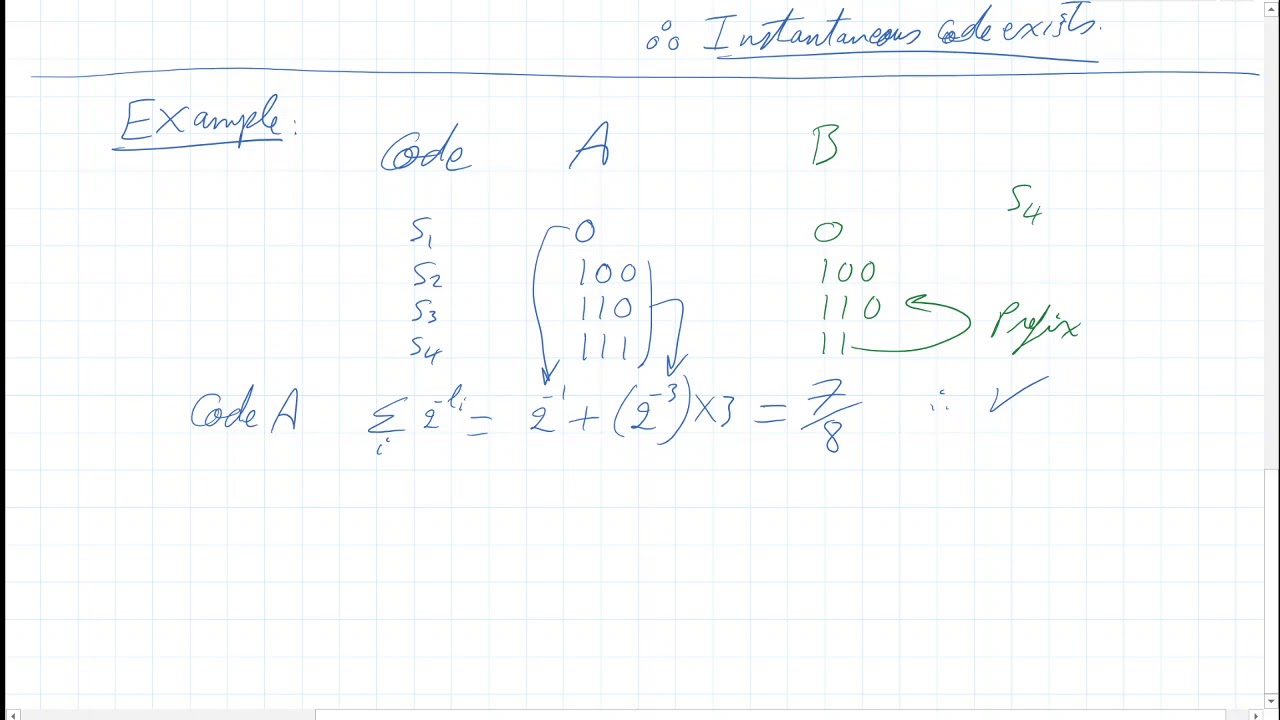 ∴ Instantaneous code exists.
Example:
Code A B
S4
S1 0 0
S2 100 100
S3 110 110 Prefix
S4 111 11
Code A ∑i 2^-li = 2^-1 + (2^-3) × 3 = 7/8 ∴ ✓